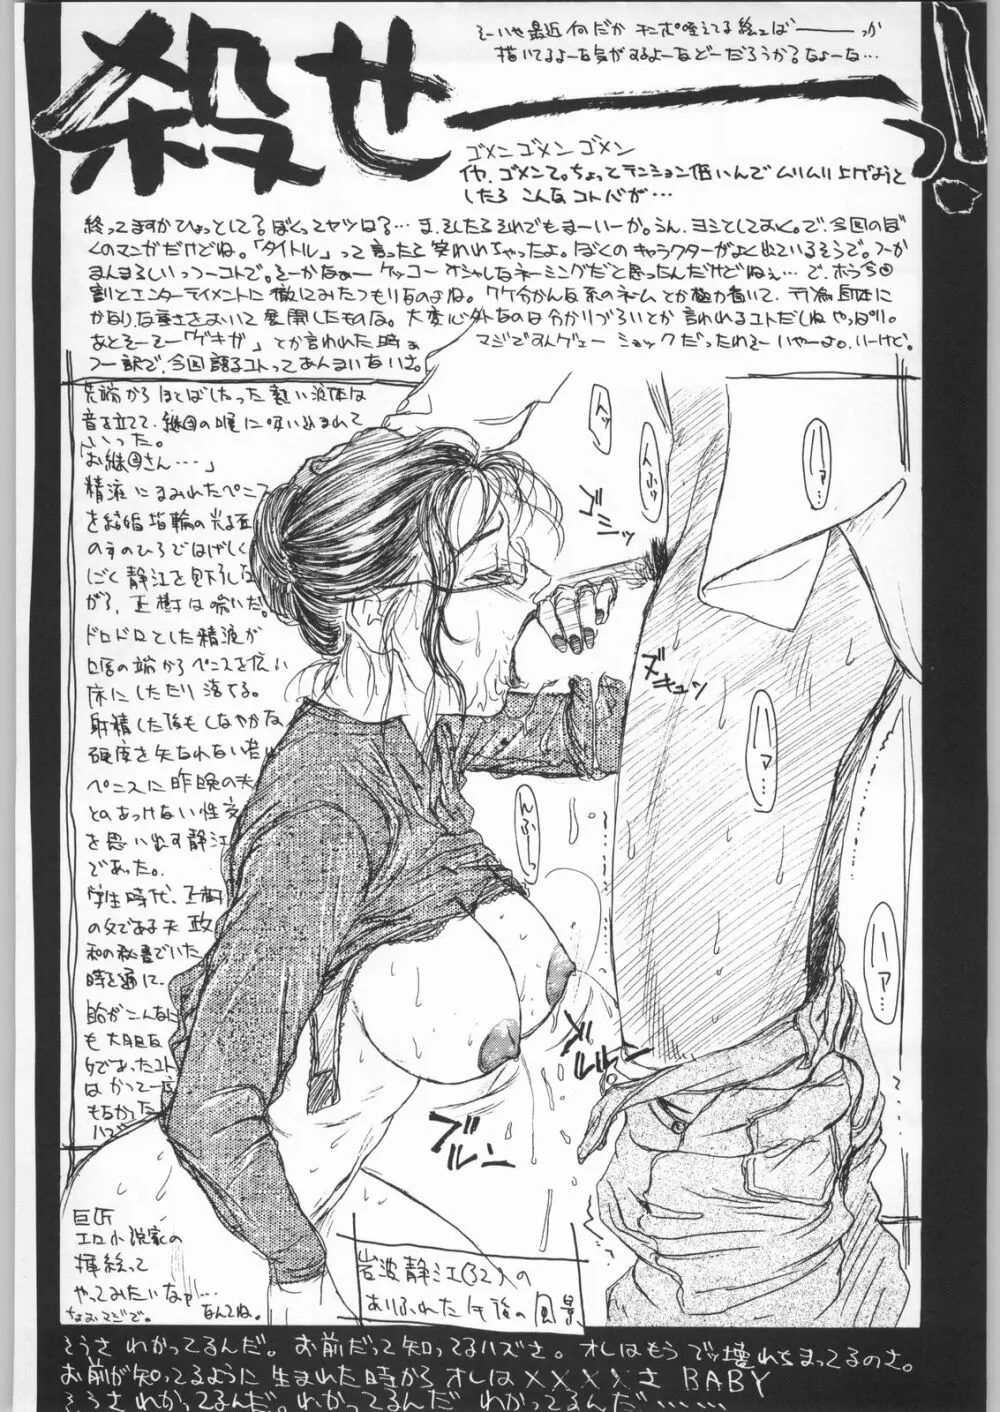 殺せーーーっ!
そーいや最近何だかチンポ咥えてる絵ェばーーーっか
描いてるよーな気がするよーなどーだろうか?なよーな…
ゴメンゴメンゴメン
イヤ、ゴメンて。ちょってテンション低いんでムリムリ上げようと
したら こんなコトバが…
終ってますかひょっとして?ぼくってヤツは?… ま、そしたらそれでもまーいーか。うん、ヨシとしておく。で、今回のぼ
くのマンガだけどね。「タイトル」って言ったら笑われちゃったよ。ぼくのキャラクターがよく出ているそうで。つーか
割とエンターテイメントに徹にみたつもりなのよね。ワケ分かんな系のネーム とか極力省いて、
かなり、な重きをおいて展開したものな。大変心外なのは分かりづらいとか言われるコトだしね やっぱり。
あとそーそー「ゲキガ」とか言われた時ぁ マジですんげェー ショックだったわそーいやーよ。いーけど。
つー訳で、今回語るコトってあんまいないさ。
先端からほとばしった熱い液体は
音を立てて、継母の喉に吸い込まれて
いった。
「お継母さん…」
精液にまみれたペニス
を結婚指輪の光る
のすのひらではげしく
しごく静江を見下ろしな
がら、正樹は喘いだ。
ドロドロとした精液が
口唇の端からペニスを伝い
床にしたたり落てる。
射精した后もしなやかな
硬度を失なわれない若い
ペニスに昨晩の夫
とのあっけない性交
を思い出す静江
であった。
学生時代、正樹
の父である夫政
和の秘書でいた
時を通じて、
自らがこんなに
も大胆な
であったコト
はかって一度
もなかった
ハズ
ンッ
んふッ
ハァ…
ゴニニッ
ズキュン
ハァ…
んふーっ
ハァ…
ズルルッ
ズルン
巨匠
エロ小説家の
挿絵って
やってみたいなァ…
ちょおマジで。 なんてね。
岩波静江(32)の
ありふれた午後の風景
そうさ わかってるんだ。お前だって知ってるハズさ。オレはもう でッ壊れちまってるのさ。
お前が知ってるように 生まれた時から オレは××××さ BABY
そうさ わかってるんだ。わかってるんだ わかってるんだ……